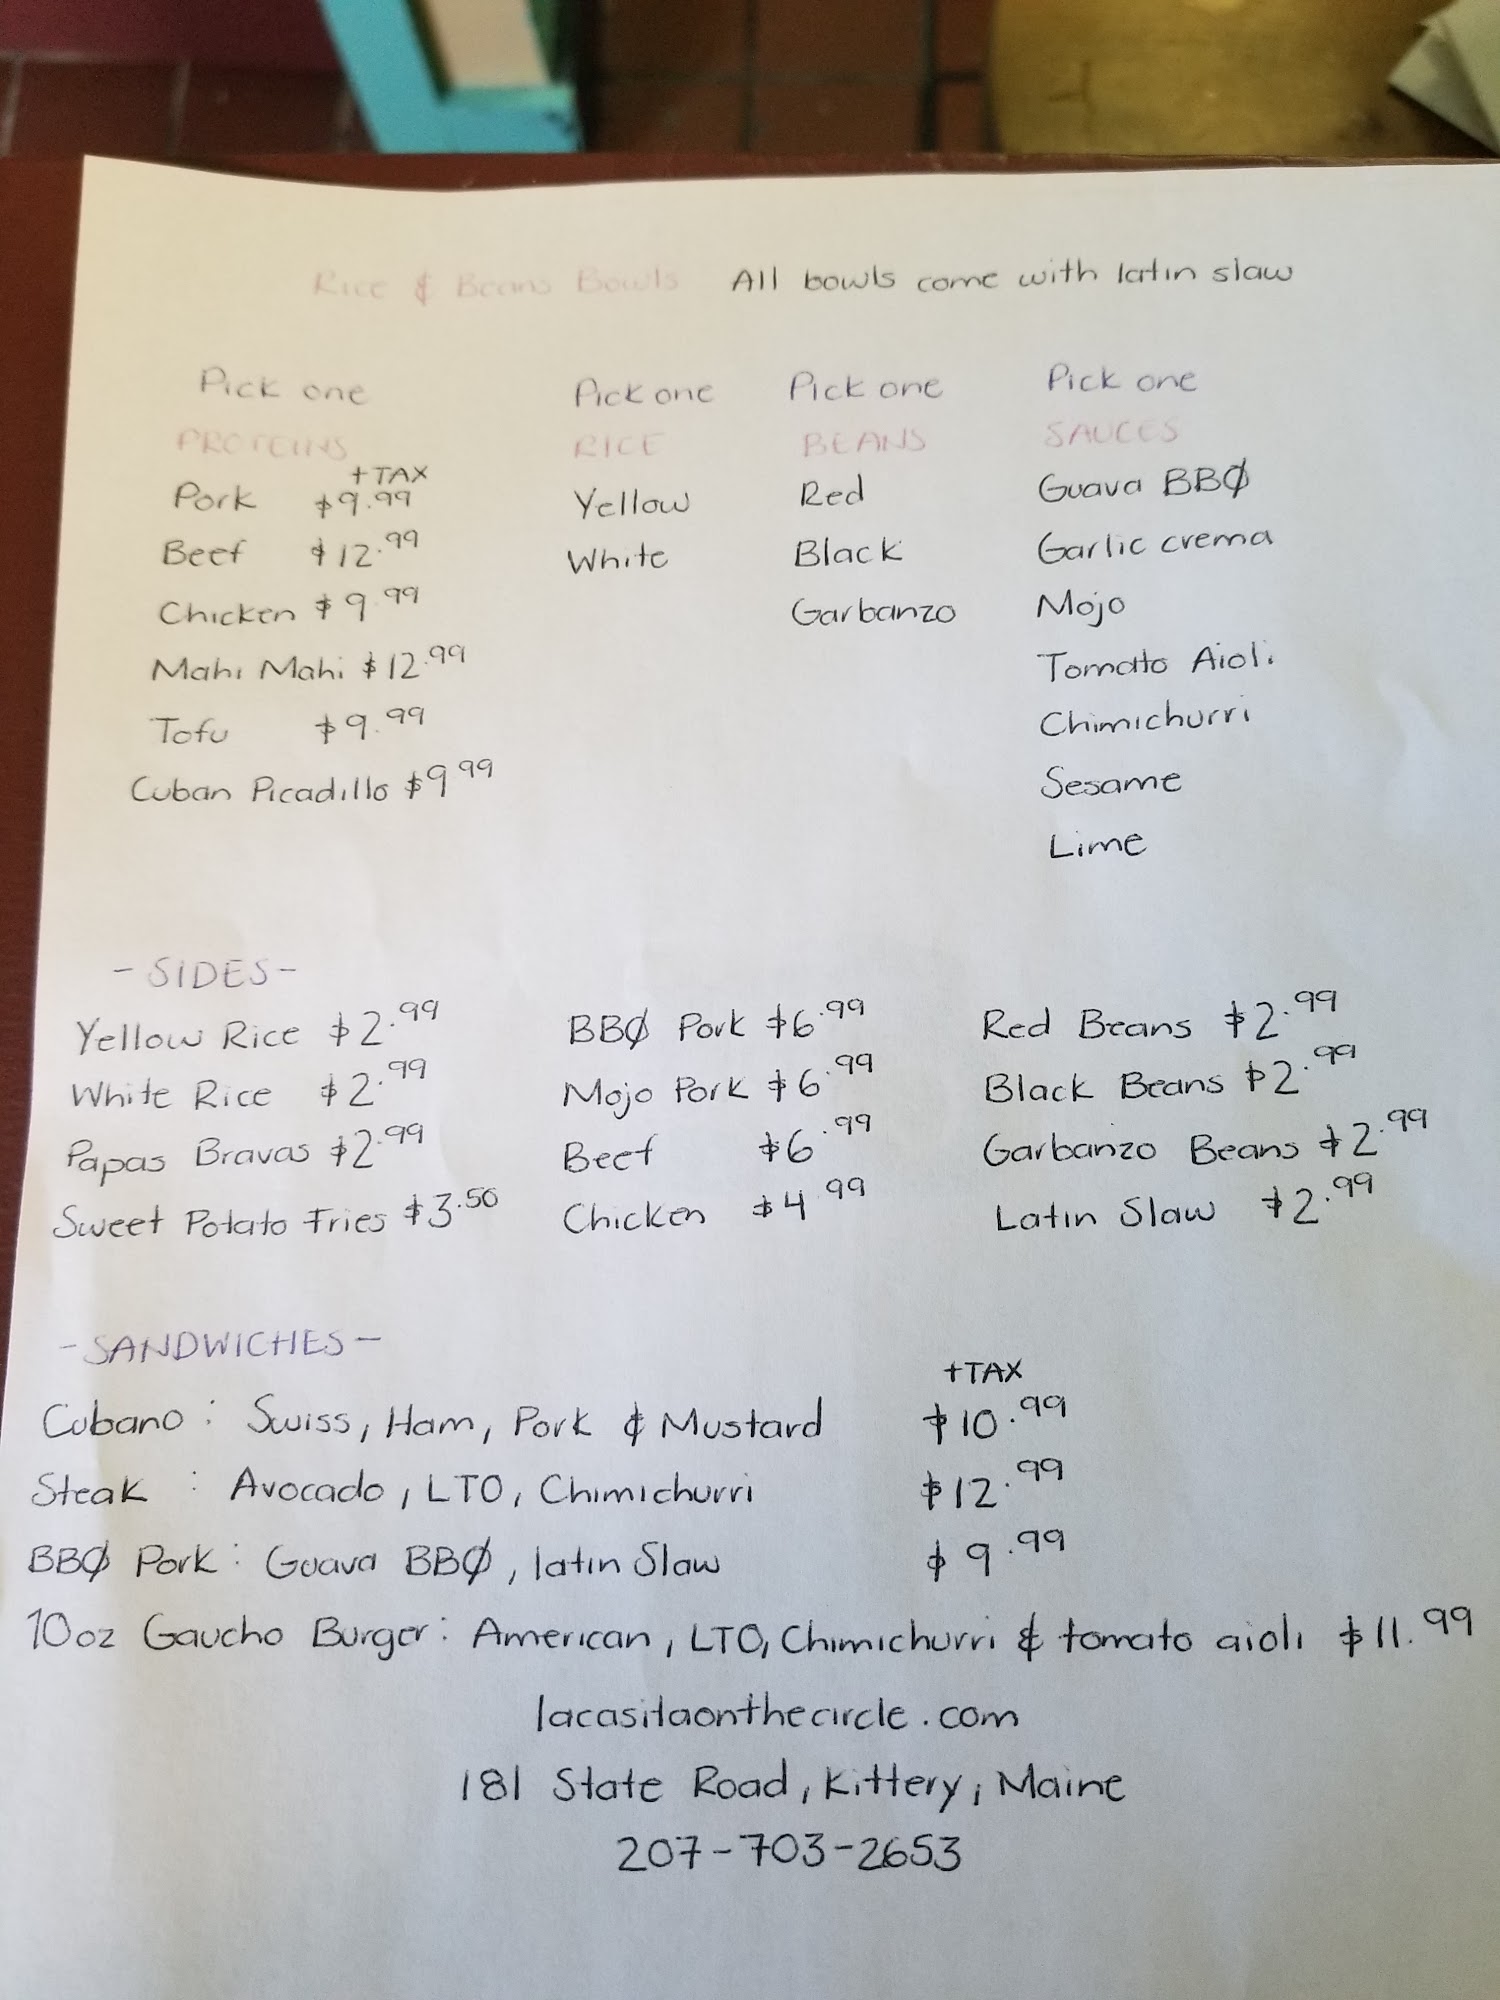 Rice & Beans Bowls All bowls come with latin slaw
Pick one Pick one Pick one Pick one
PROTEINS RICE BEANS SAUCES
+TAX
Pork $9.99 Yellow Red Guava BBQ
Beef $12.99 White Black Garlic crema
Chicken $9.99 Garbanzo Mojo
Mahi Mahi $12.99 Tomato Aioli
Tofu $9.99 Chimichurri
Cuban Picadillo $9.99 Sesame
Lime
-SIDES-
Yellow Rice $2.99 BBQ Pork $6.99 Red Beans $2.99
White Rice $2.99 Mojo Pork $6.99 Black Beans $2.99
Papas Bravas $2.99 Beef $6.99 Garbanzo Beans $2.99
Sweet Potato Fries $3.50 Chicken $4.99 Latin Slaw $2.99
-SANDWICHES-
+TAX
Cubano: Swiss, Ham, Pork & Mustard $10.99
Steak: Avocado, LTO, Chimichurri $12.99
BBQ Pork: Guava BBQ, latin Slaw $9.99
10oz Gaucho Burger: American, LTO, Chimichurri & tomato aioli $11.99
lacasitaonthecircle.com
181 State Road, Kittery, Maine
207-703-2653